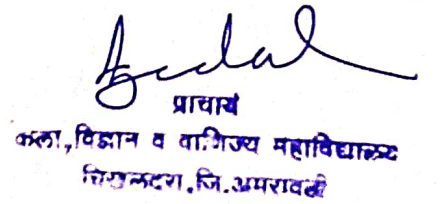 प्राचार्य
कला, विज्ञान व वाणिज्य महाविद्यालय
चिखलदरा, जि. अमरावती